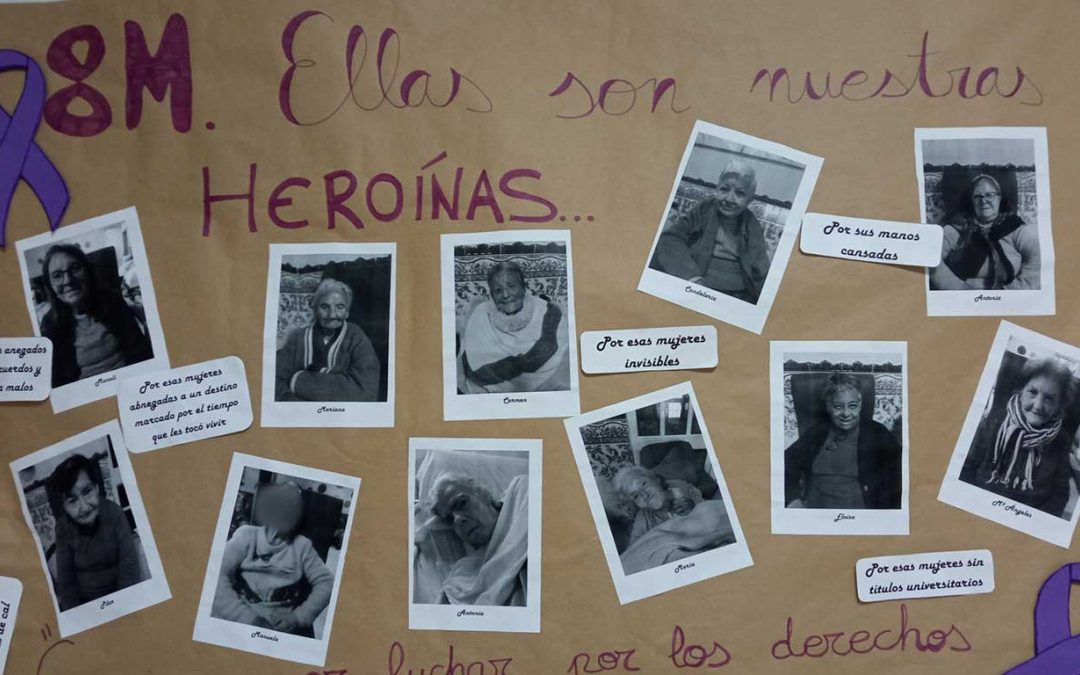 8M. Ellas son nuestras
HEROÍNAS...
Candelaria
Por sus manos
cansadas
Antonia
anegados
cuerdos y
malos
Por esas mujeres
abnegadas a un destino
marcado por el tiempo
que les tocó vivir
Mariana
Carmen
Por esas mujeres
invisibles
Eloisa
Mª Angeles
Pilar
Manuela
Antonia
Maria
Por esas mujeres sin
títulos universitarios
de cal
"
luchar por los derechos